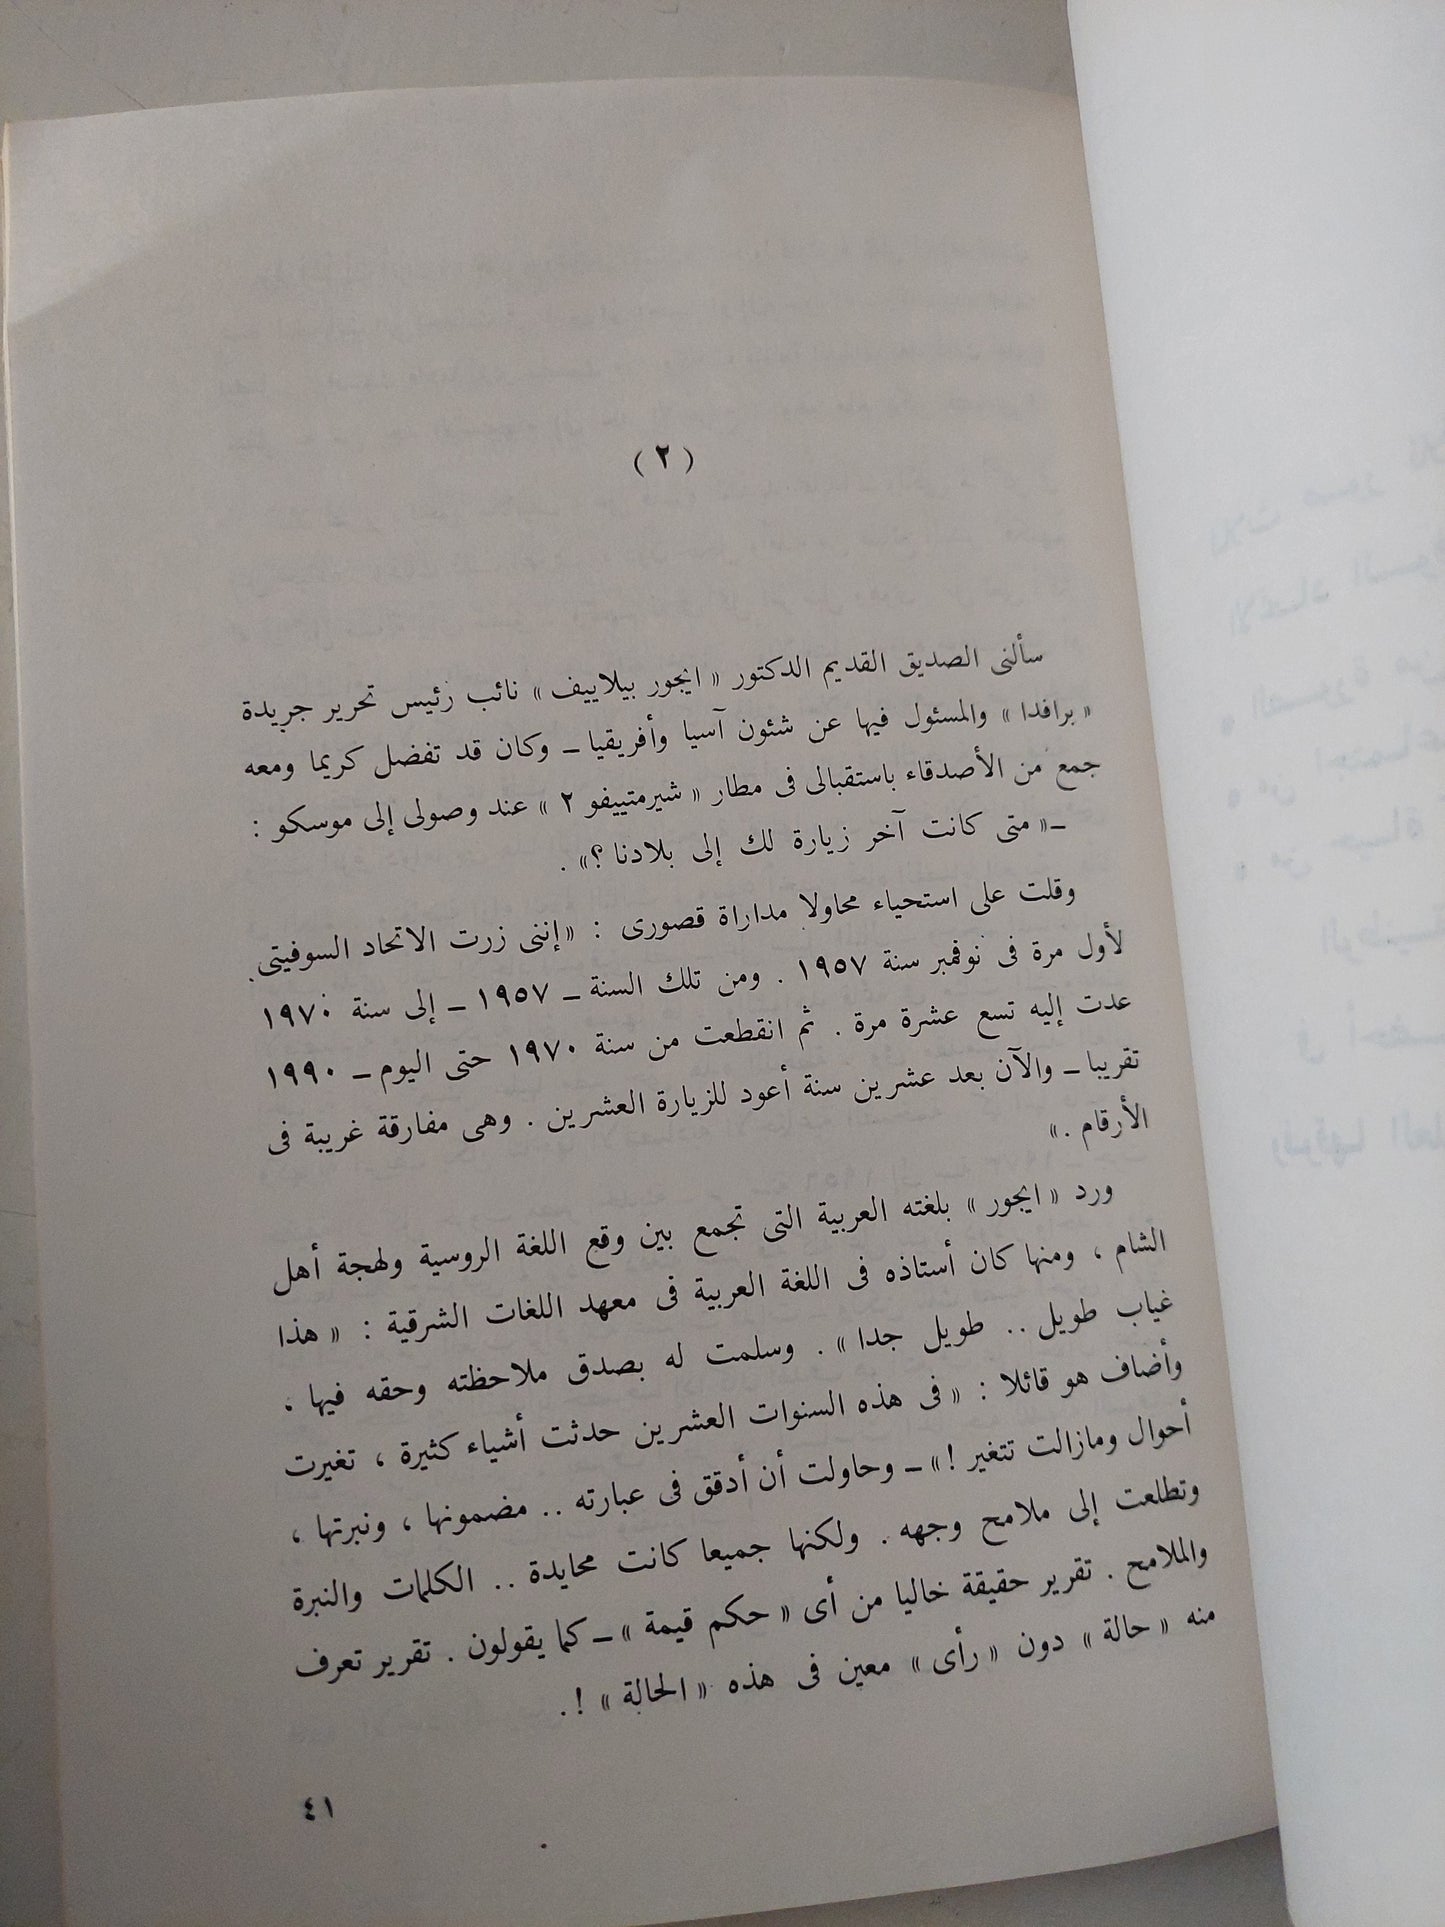 ( ٢ )
سألنى الصديق القديم الدكتور « ايجور بيلاييف » نائب رئيس تحرير جريدة
« برافدا » والمسئول فيها عن شئون آسيا وأفريقيا ــ وكان قد تفضل كريما ومعه
جمع من الأصدقاء باستقبالى فى مطار « شيرمتييفو ٢ » عند وصولى إلى موسكو :
ــ« متى كانت آخر زيارة لك إلى بلادنا ؟» .
وقلت على استحياء محاولا مداراة قصورى : «إننى زرت الاتحاد السوفيتى
لأول مرة فى نوفمبر سنة ١٩٥٧ . ومن تلك السنة ــ ١٩٥٧ ــ إلى سنة ١٩٧٠
عدت إليه تسع عشرة مرة . ثم انقطعت من سنة ١٩٧٠ حتى اليوم ــ ١٩٩٠
تقريبا ــ والآن بعد عشرين سنة أعود للزيارة العشرين . وهى مفارقة غريبة فى
الأرقام .»
ورد « ايجور » بلغته العربية التى تجمع بين وقع اللغة الروسية ولهجة أهل
الشام ، ومنها كان أستاذه فى اللغة العربية فى معهد اللغات الشرقية : « هذا
غياب طويل .. طويل جدا » . وسلمت له بصدق ملاحظته وحقه فيها .
وأضاف هو قائلا : « فى هذه السنوات العشرين حدثت أشياء كثيرة ، تغيرت
أحوال ومازالت تتغير !» ــ وحاولت أن أدقق فى عبارته .. مضمونها ، ونبرتها ،
وتطلعت إلى ملامح وجهه . ولكنها جميعا كانت محايدة .. الكلمات والنبرة
والملامح . تقرير حقيقة خاليا من أى « حكم قيمة » ــ كما يقولون . تقرير تعرف
منه « حالة » دون « رأى » معين فى هذه « الحالة » !.
٤١